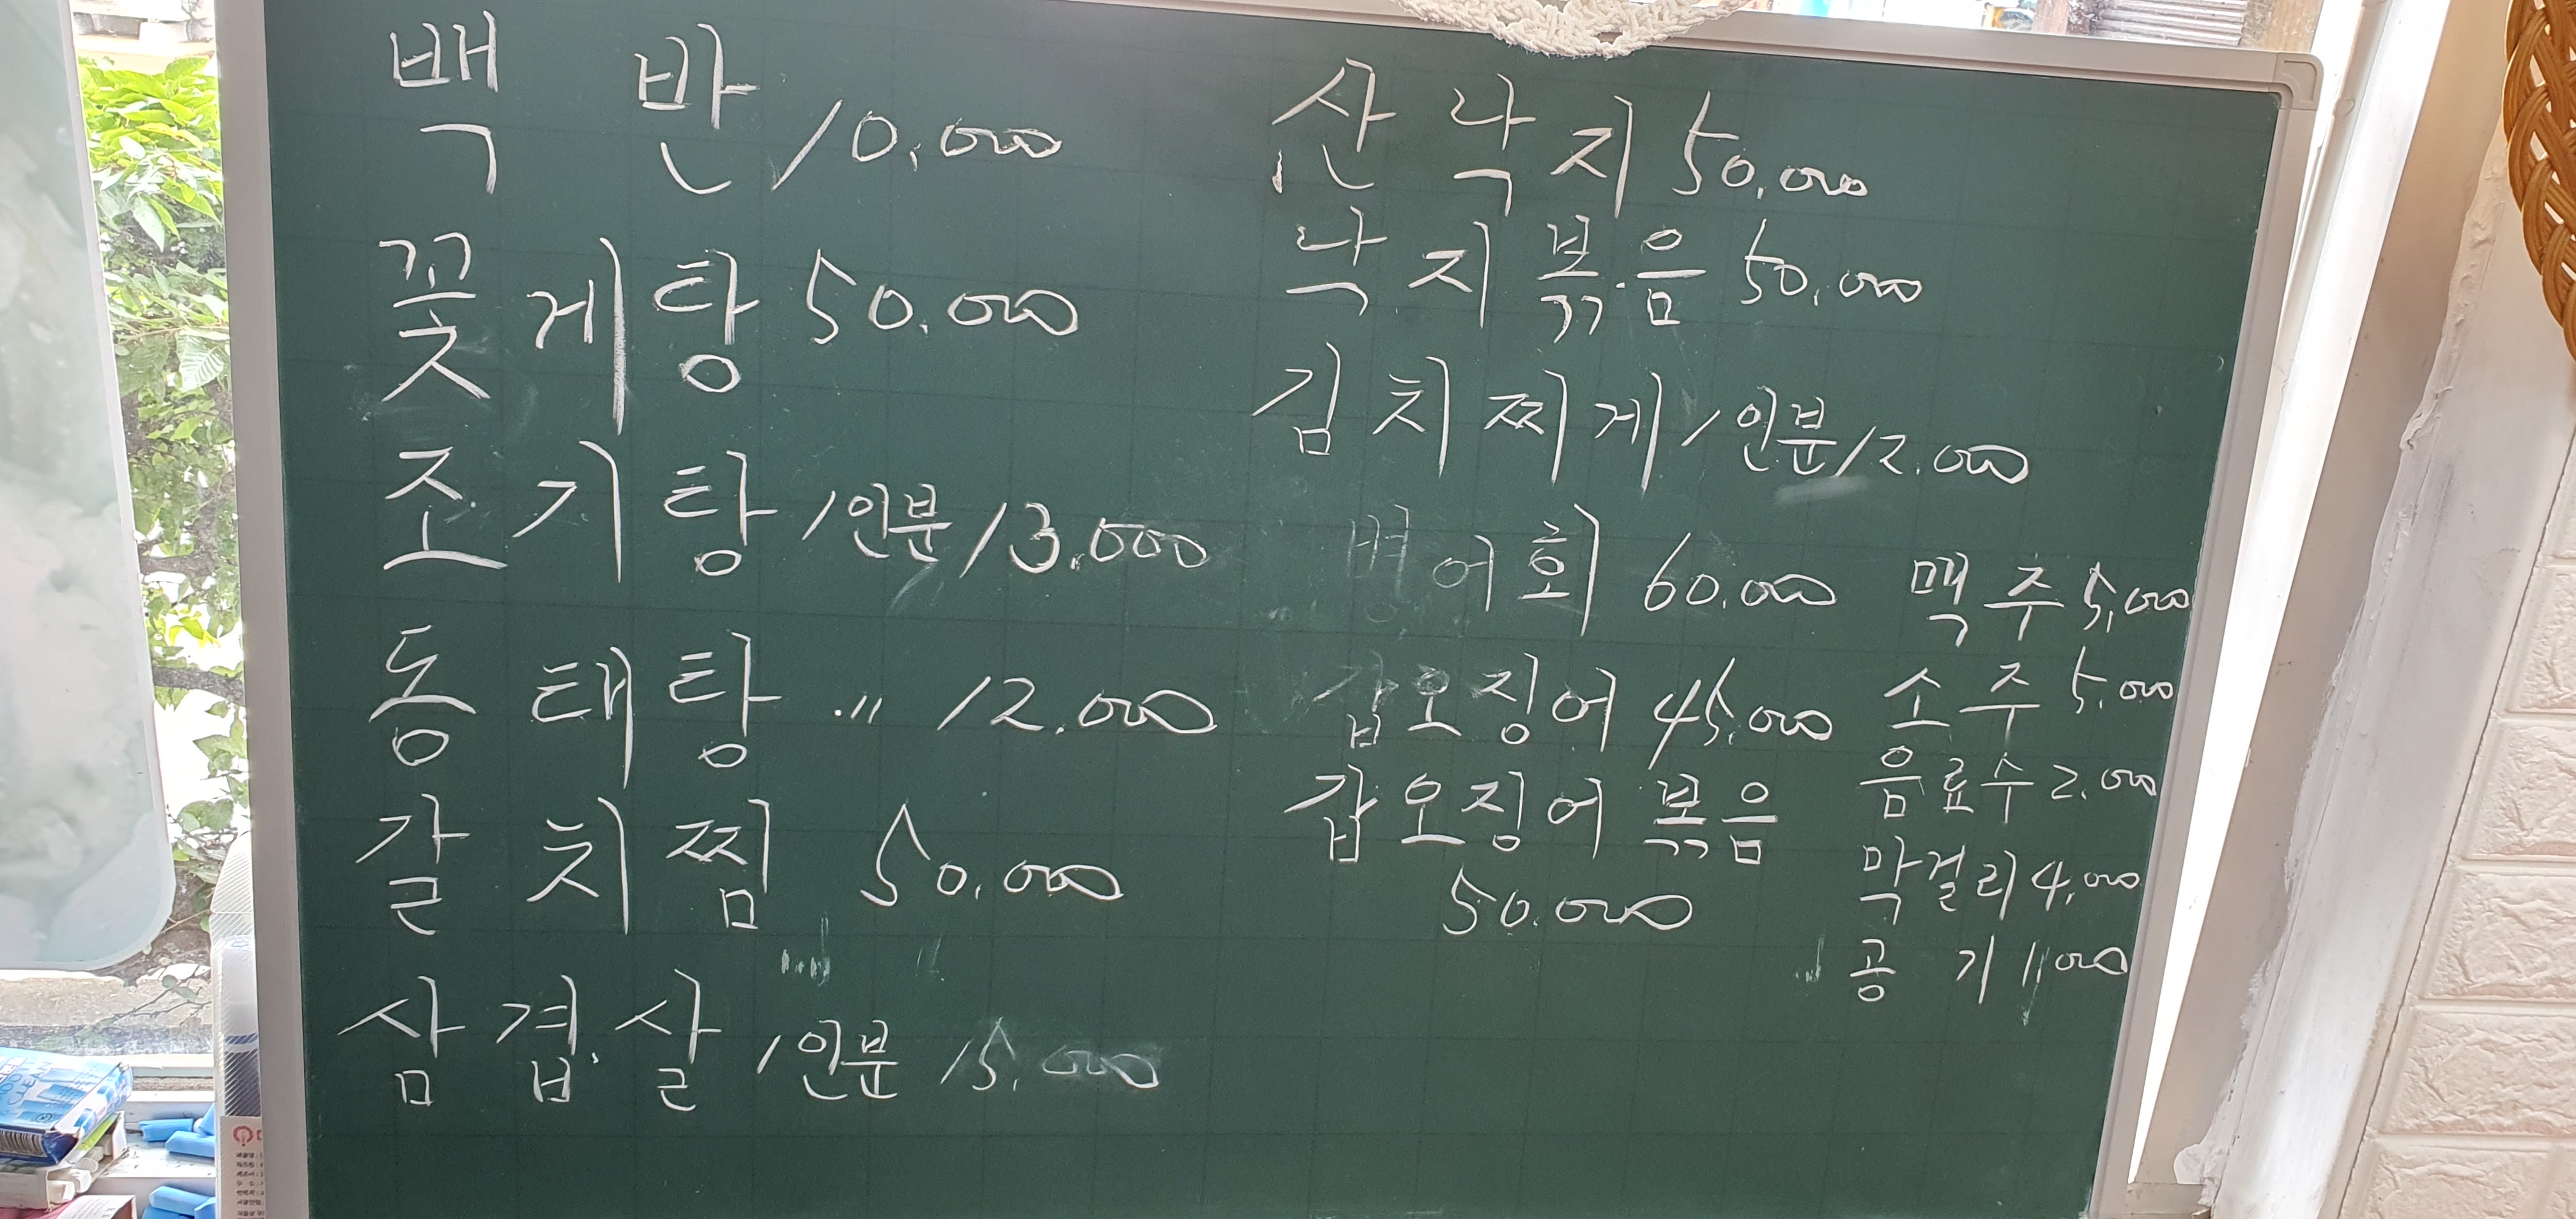 백 반 10.000
꽃게탕 50.000
조기탕 1인분 13.000
동태탕 〃 12.000
갈치찜 50.000
삼겹살 1인분 15.000
산낙지 50.000
낙지볶음 50.000
김치찌게 1인분 12.000
병어회 60.000
갑오징어 45.000
갑오징어 볶음
50.000
맥주 5,000
소주 5,000
음료수 2.000
막걸리 4,000
공 기 1,000